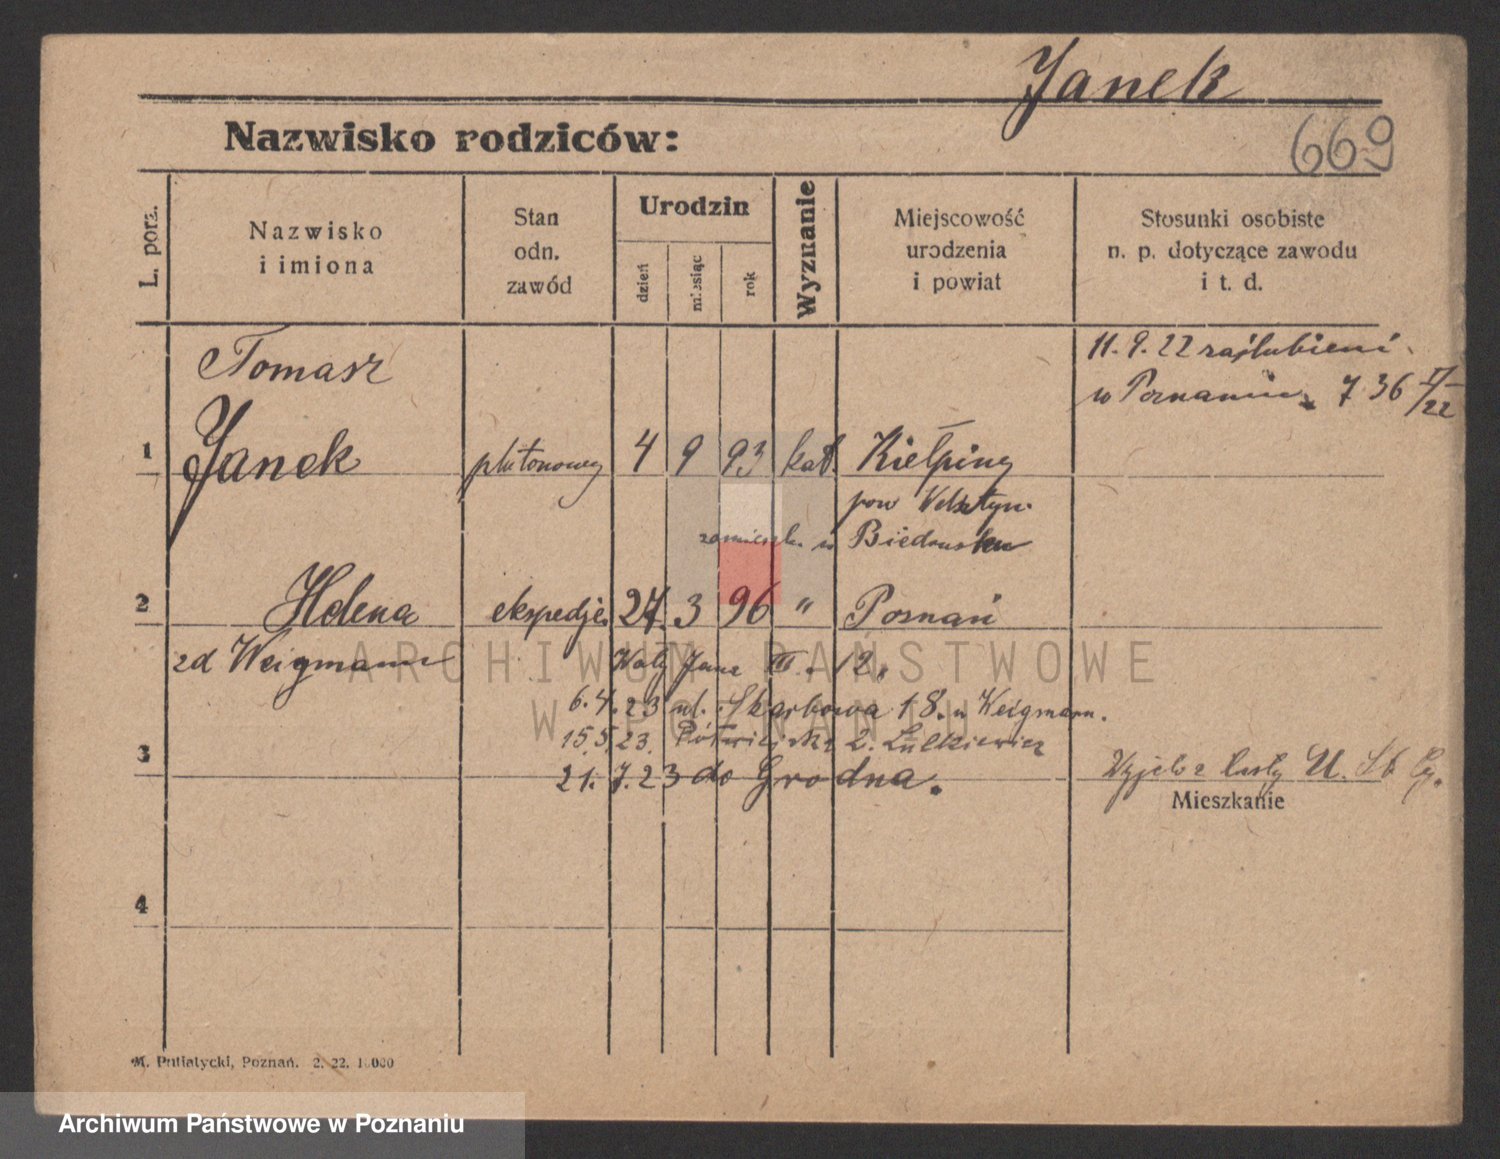 Janek
Nazwisko rodziców:
669
L. porz.
Nazwisko
i imiona
Stan
odn.
zawód
Urodzin
dzień
miesiąc
rok
Wyznanie
Miejscowość
urodzenia
i powiat
Stosunki osobiste
n. p. dotyczące zawodu
i t. d.
11. 9. 22 zaślubieni
w Poznaniu. 736 II/22
Tomasz
1 Janek plutonowy 4 9 93 kat. Kiełpiny
pow Wolsztyn.
zamieszk. w Biedrusku
2 Helena ekspedje. 27. 3 96 " Poznań
zd Weigmann Wały Jana III. 12,
6.4.23 ul. Skarbowa 18. u Weigmann.
15.5.23. Półwiejska 2. Lulkiewicz
3
21. 7. 23 do Grodna.
Mieszkanie
4
M. Putiatycki, Poznań. 2. 22. 10000
ARCHIWUM PAŃSTWOWE
W POZNANIU
Archiwum Państwowe w Poznaniu